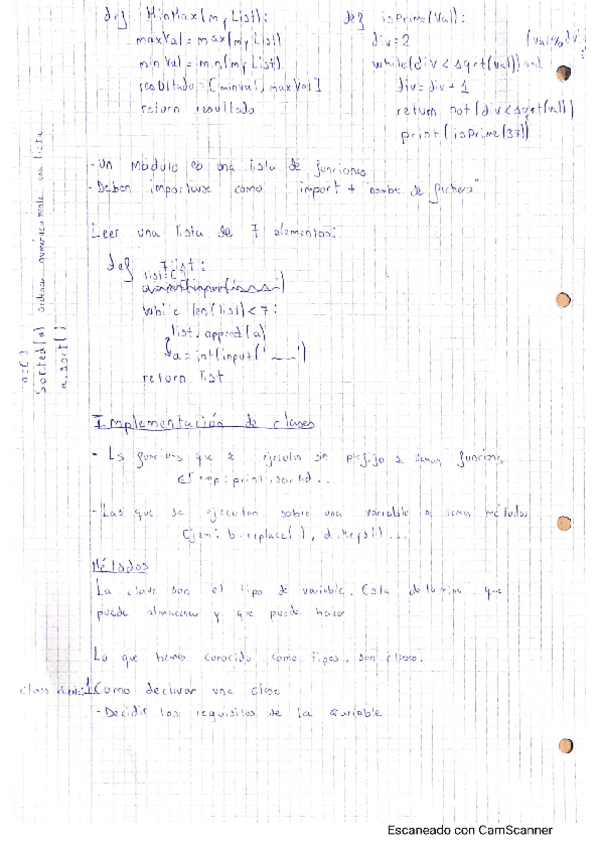 def MinMax(myList):
maxVal = max(myList)
minVal = min(myList)
resultado = [minVal, maxVal]
return resultado
def isPrime(Val):
div=2
while(div < sqrt(val)) and (val%div
div=div+1
return not(div<sqrt(val))
print(isPrime(37))
-Un modulo es una lista de funciones
-Deben importarse como import + "nombre de fichero"
Leer una lista de 7 elementos:
def 7list:
list=[
while len(list)<7:
list.append(a)
a=int(input('
return list
a=[]
Sorted(a) ordenar numericamente una lista
a.sort()
Implementación de clases
- Ls funcions que se ejecutan sin prefijo se llaman funcions
Ejmp: print, sorted...
-Las que se ejecutan sobre una variable se llaman métodos
Ejem: b.replace(), d.keys()...
Métodos
La clave son el tipo de variable. Esta determina que
puede almacenar y que puede hacer
Lo que hemos conocido como tipos, son clases.
class
1 Como declarar una clase
-Decidir los requisitos de la variable
Escaneado con CamScanner